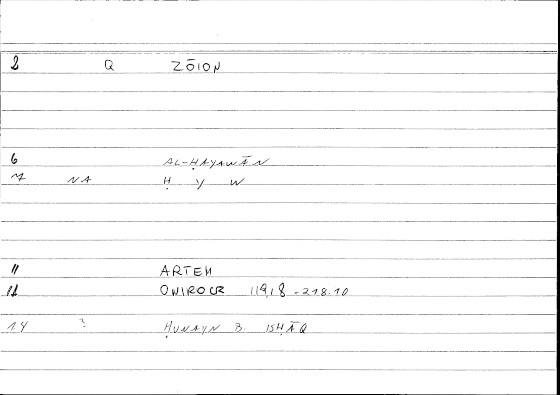 2 Q ZŌION
6 AL-ḤAYAWĀN
7 NA Ḥ Y W
11 ARTEM
12 ONIROCR 119,18 - 218.10
14 ? ḤUNAYN B. ISḤĀQ